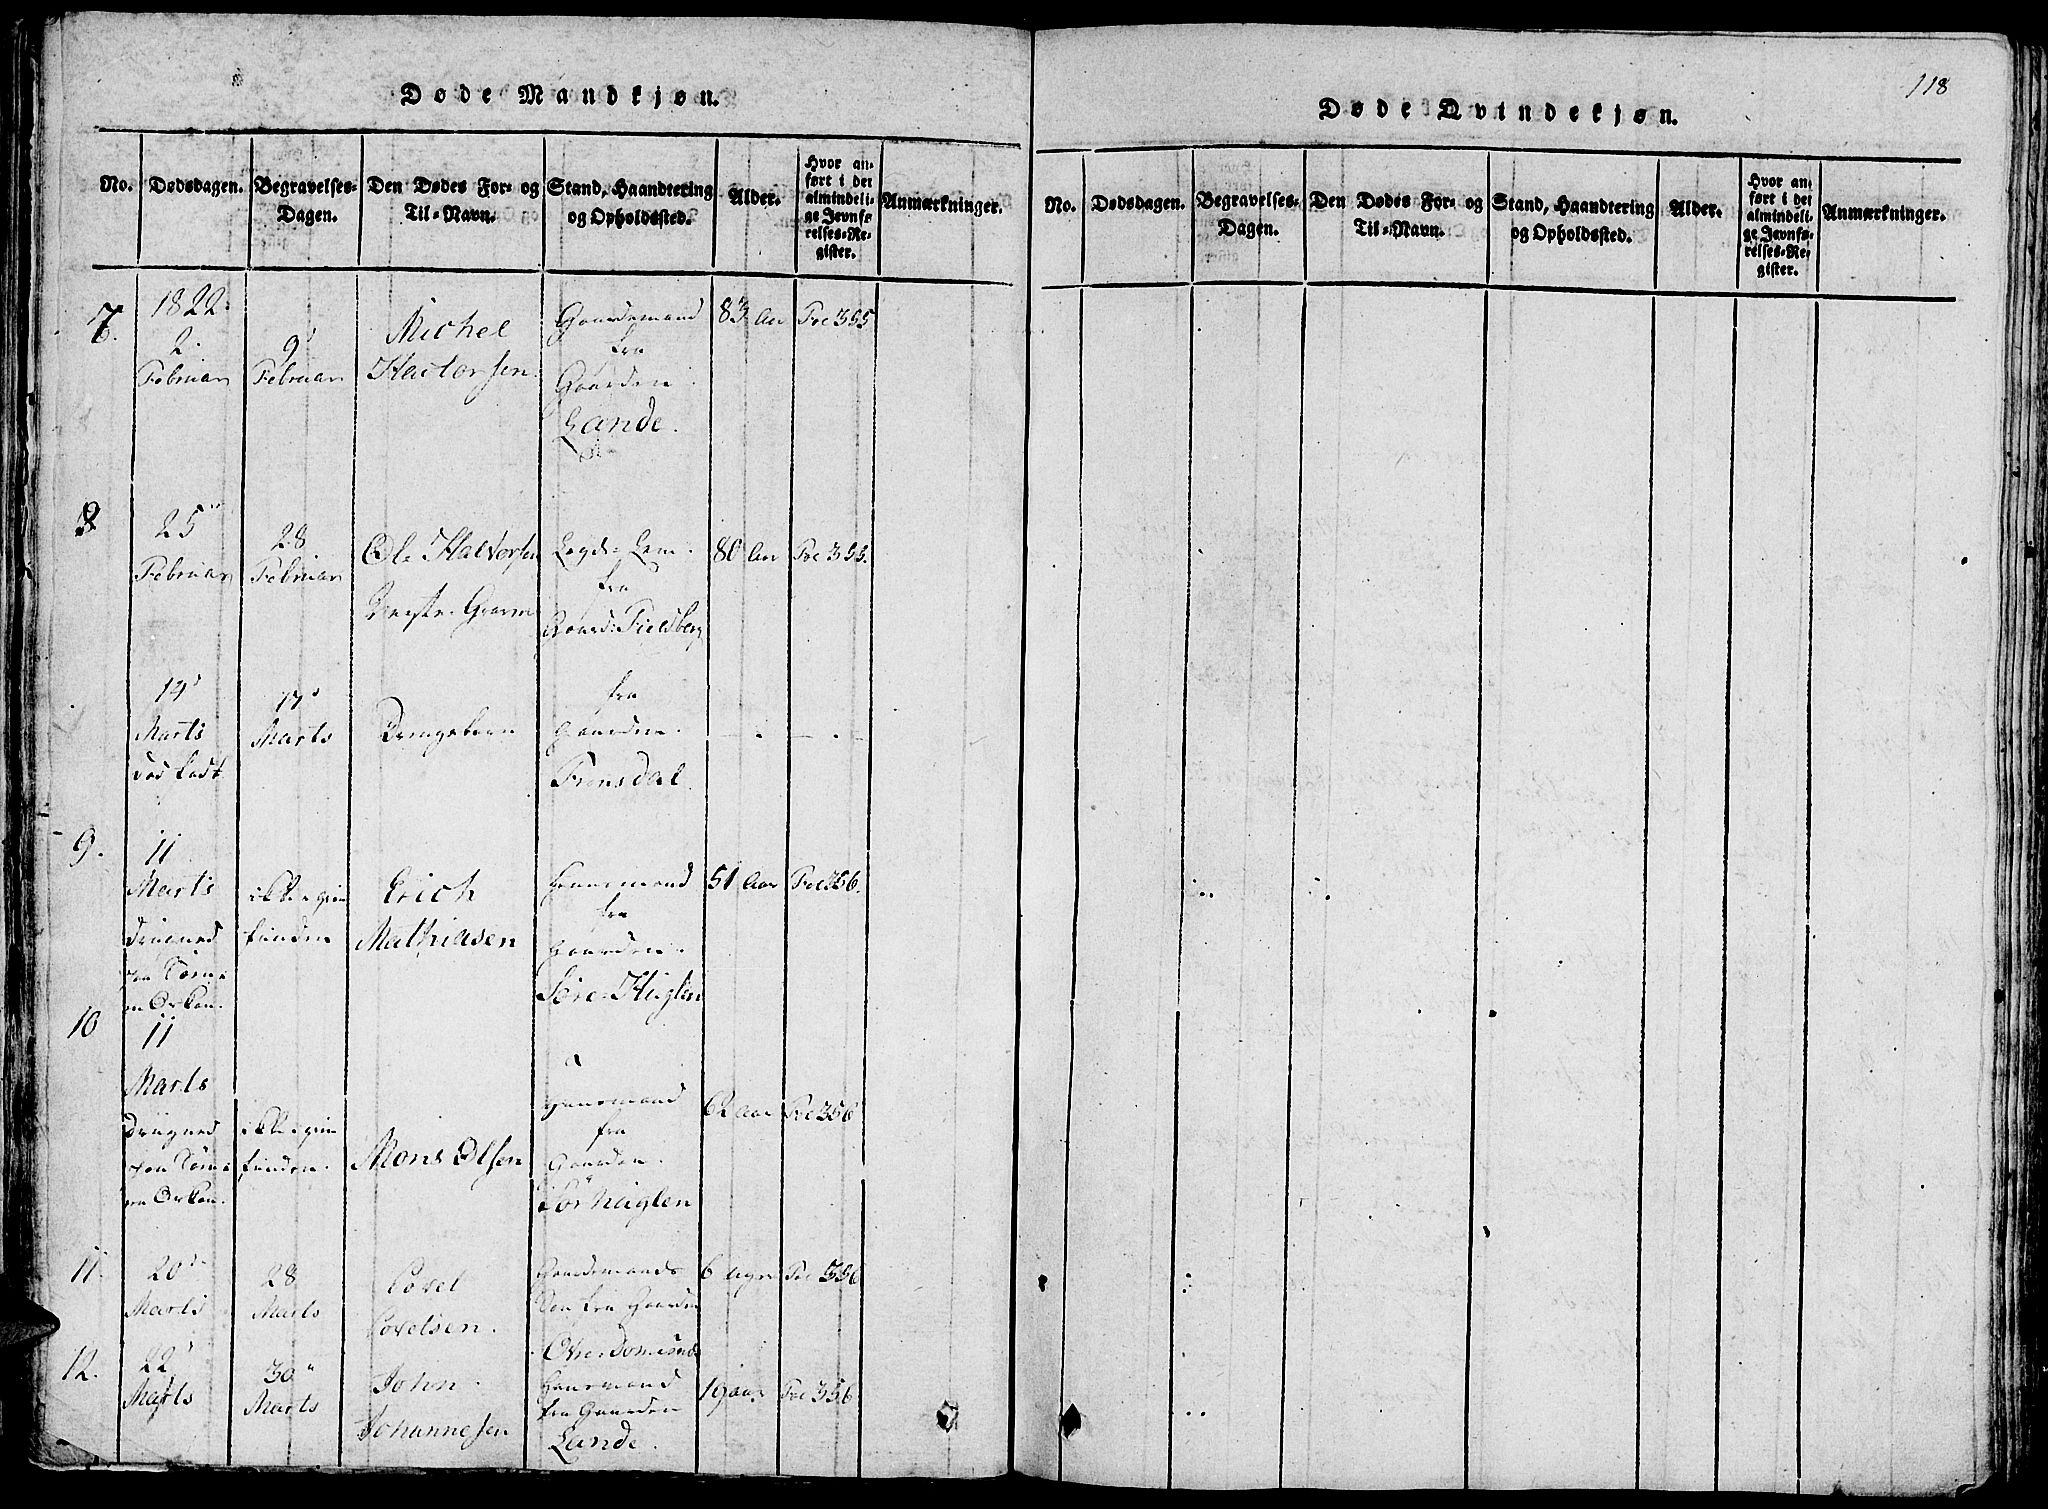 Døde Mandkjøn.
No.
Dødsdagen.
Begravelses-
Dagen.
Den Dødes For- og
Til-Navn.
Stand, Haandtering
og Opholdssted.
Alder.
Hvor an-
ført i det
almindeli-
ge Jevnfø-
relses-Re-
gister.
Anmærkninger.
7.
1822.
2.
Februar
9
Februar
Michel
Gaardemand
fra
Gaarden
Lande.
83 Aar
Fol 355
8
25
Februar
28
Februar
Ole Halvorsen
Lægds-Lem.
fra
Gaard: Fieldberg
80 Aar
Fol 355.
14
Marts
død født
17
Marts
Drengebarn
fra
Gaarden
Fronsdal.
9.
11
Marts
funden
Erich
Mathiasen
Huusmand
fra
Gaarden
51 Aar
Fol 356.
10
11
Marts
Orkan.
funden.
Mons Olsen
Huusmand
fra
Gaarden
Sörhuglen
62 Aar
Fol 356
11.
20
Marts
28
Marts
Povel
Povelsen.
Gaardemands
Søn fra Gaarden
6 Uger
Fol 356
12.
22
Marts
30
Marts
John
Johannesen
Huusmand
fra Gaarden
Lande.
19 aar
Fol 356
118
Døde Qvindekjøn.
No.
Dødsdagen.
Begravelses-
Dagen.
Den Dødes For- og
Til-Navn.
Stand, Haandtering
og Opholdssted.
Alder.
Hvor an-
ført i det
almindeli-
ge Jevnfø-
relses-Re-
gister.
Anmærkninger.